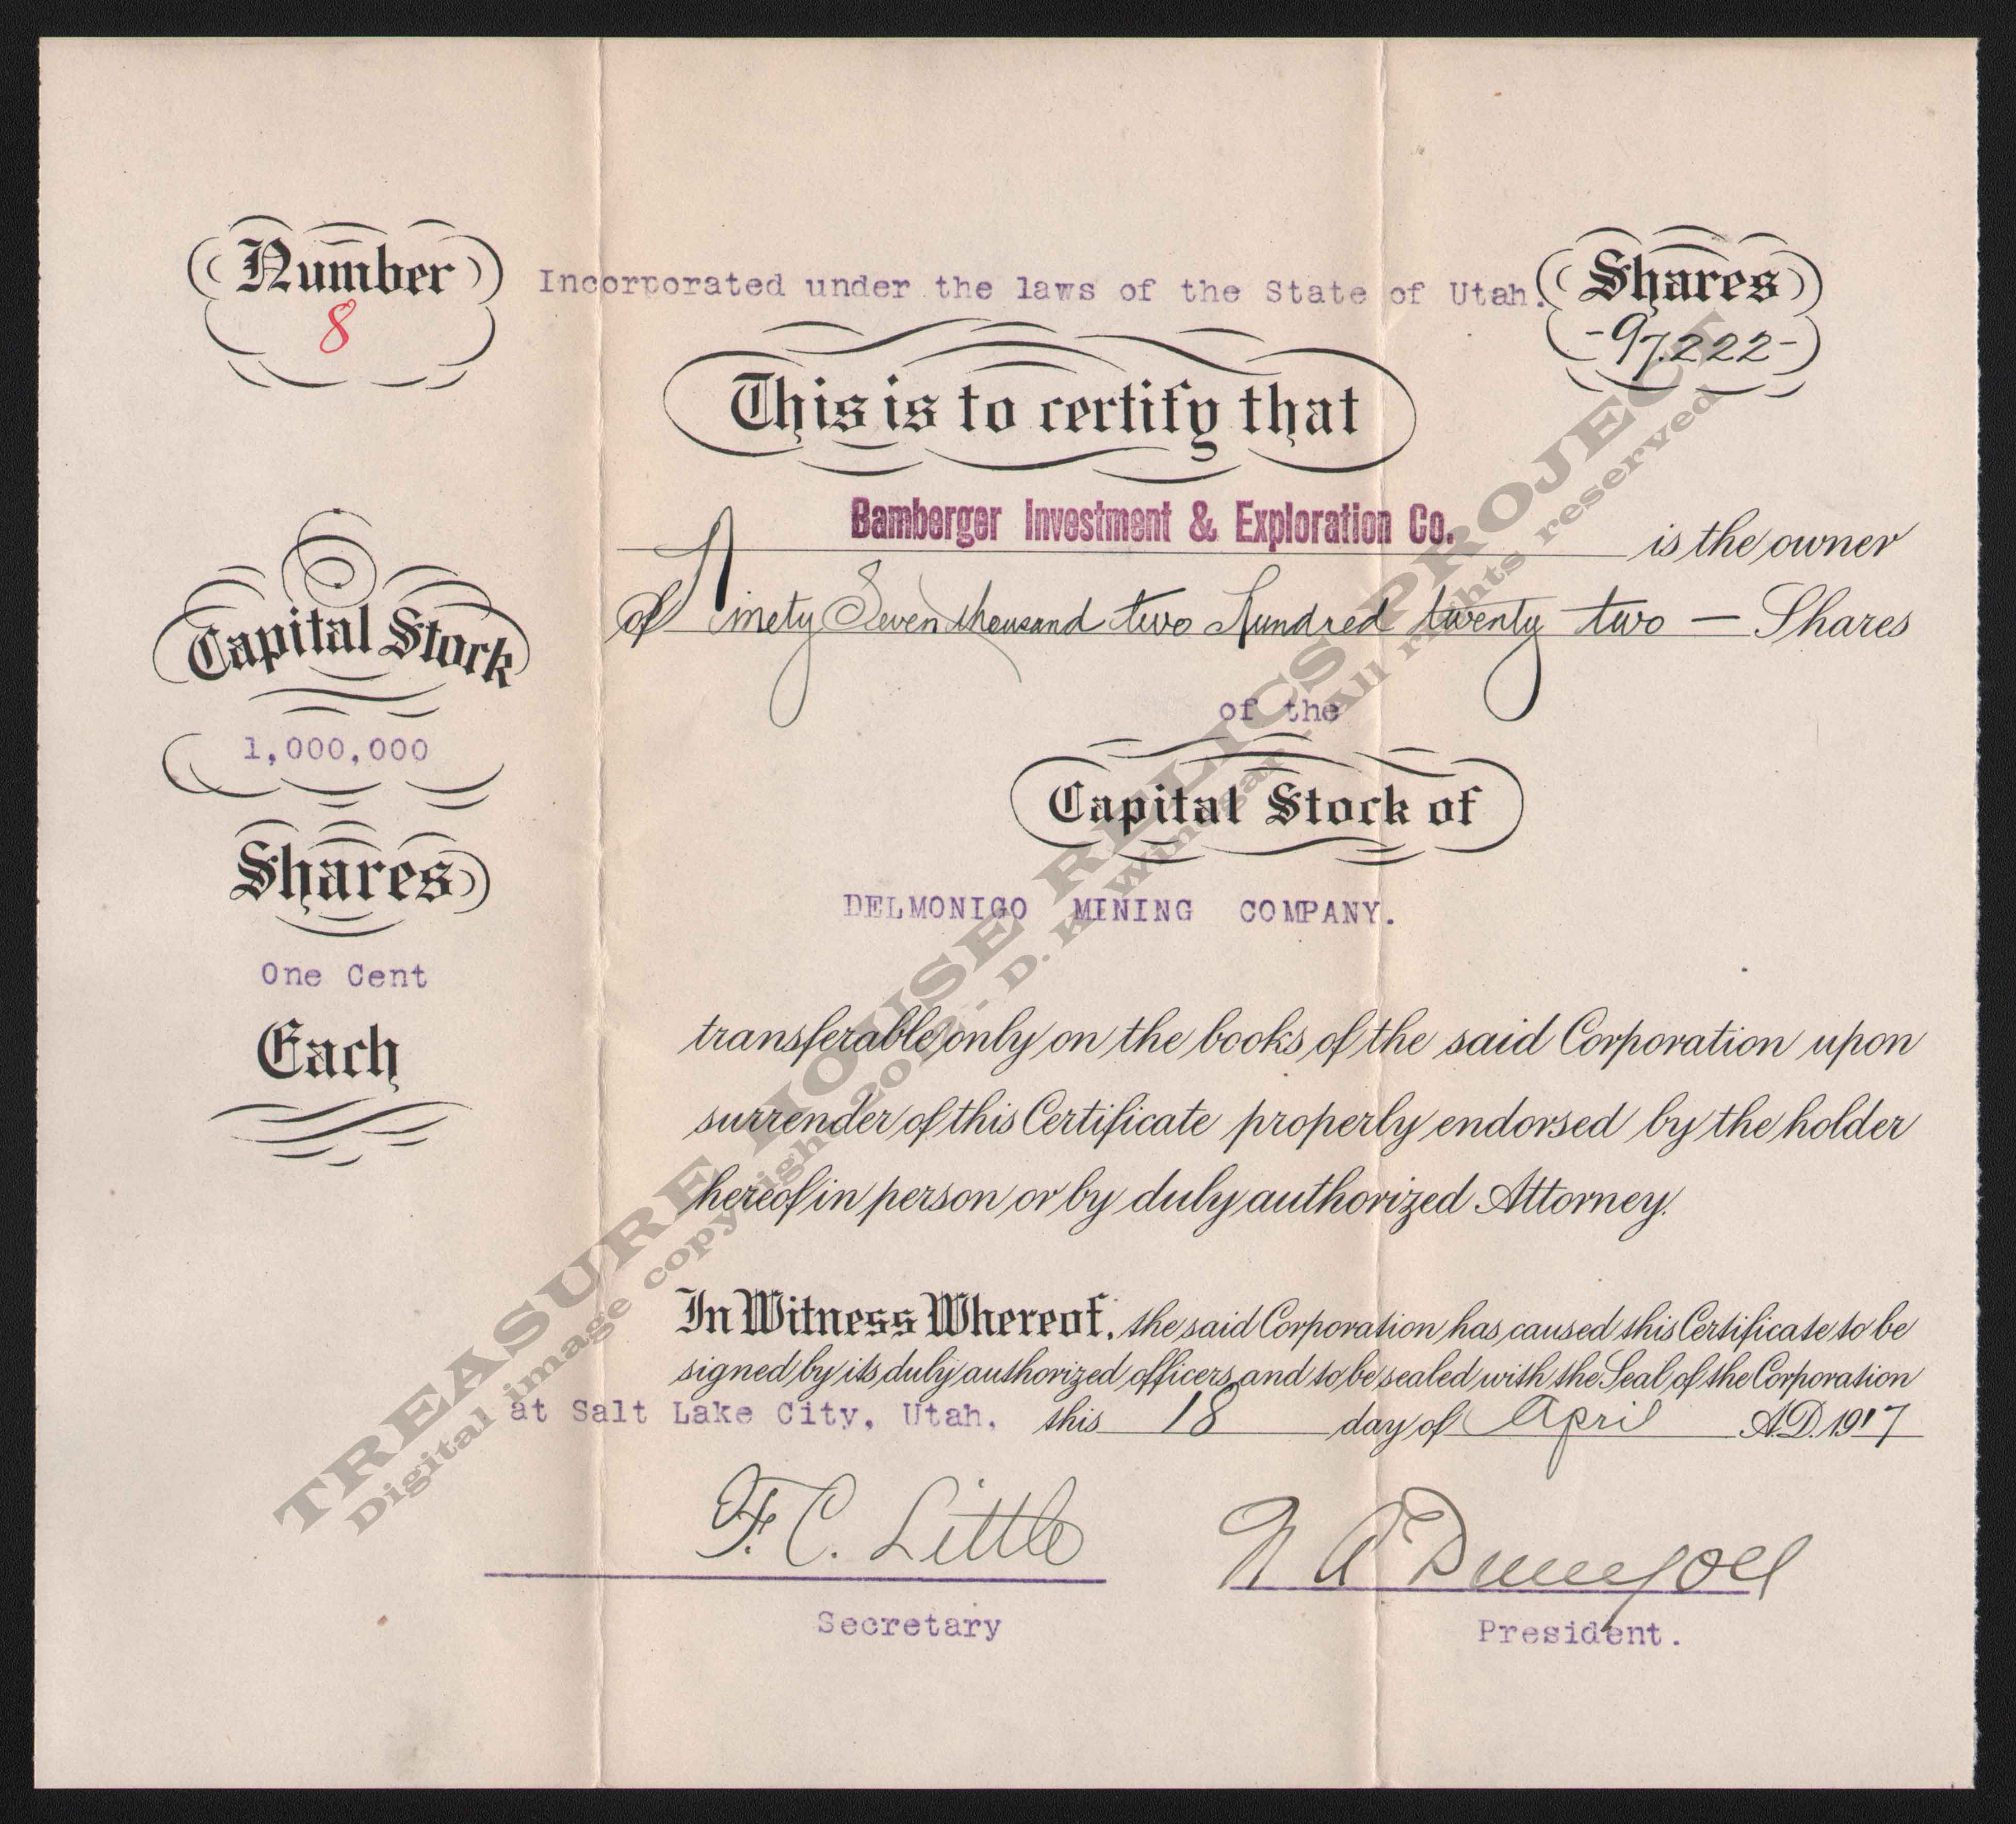 Number
8
Incorporated under the laws of the State of Utah.
Shares
-97.222-
This is to certify that
Bamberger Investment & Exploration Co. is the owner
of Ninety Seven thousand two Hundred twenty two — Shares
of the
Capital Stock of
DELMONIGO MINING COMPANY.
Capital Stock
1,000,000
Shares
One Cent
Each
transferable only on the books of the said Corporation upon
surrender of this Certificate properly endorsed by the holder
hereof in person or by duly authorized Attorney.
In Witness Whereof, the said Corporation has caused this Certificate to be
signed by its duly authorized officers and to be sealed with the Seal of the Corporation
at Salt Lake City, Utah, this 18 day of April A.D. 1917
F. C. Little
Secretary
President.
TREASURE HOUSE RELICS PROJECT
Digital image copyright 2012 - D. K. Winegar - All rights reserved